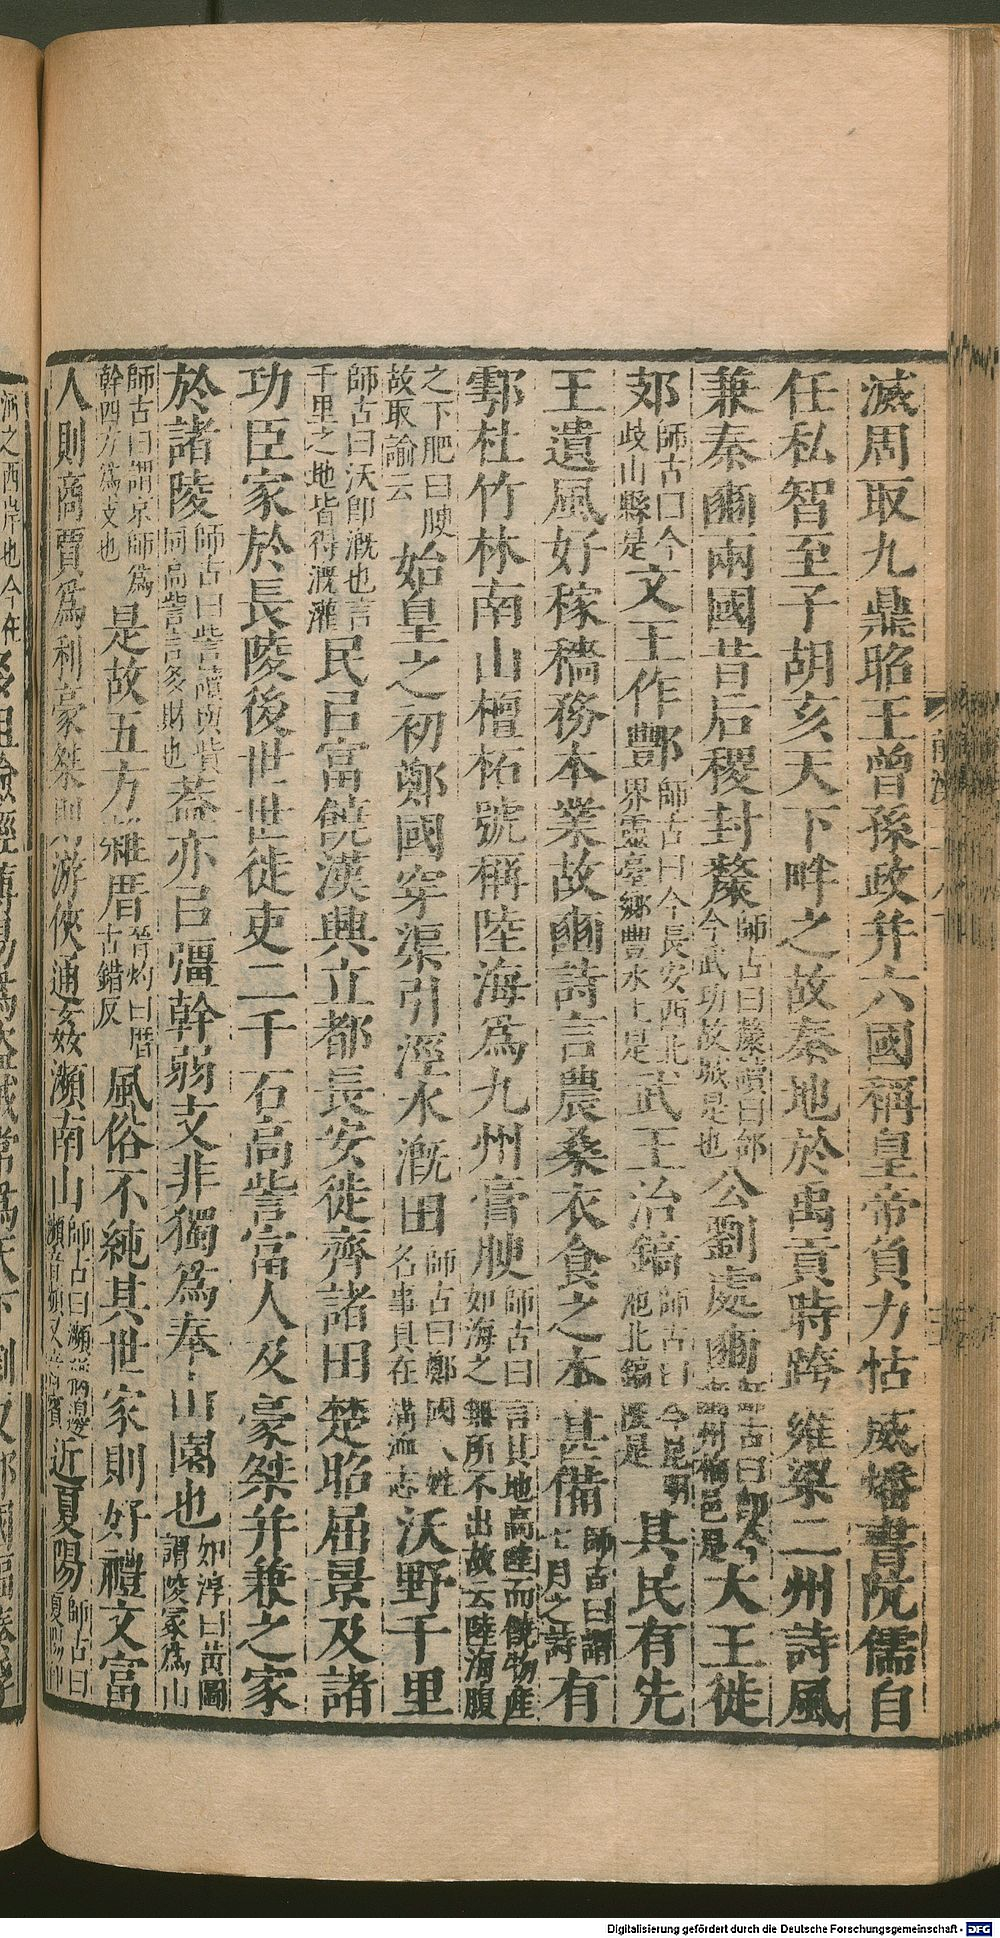 滅周取九鼎昭王曾孫政并六國稱皇帝負力怙威燔書阬儒自
任私智至子胡亥天下畔之故秦地於禹貢時跨雍梁二州詩風
兼秦豳兩國昔后稷封斄師古曰斄讀曰邰今武功故城是也公劉處豳師古曰即今豳州栒邑是大王徙
郊師古曰今歧山縣是文王作酆師古曰今長安西北界靈臺鄉豐水上是武王治鎬師古曰今昆明池北鎬陂是其民有先
王遺風好稼穡務本業故豳詩言農桑衣食之本甚備師古曰謂七月之詩有
鄠杜竹林南山檀柘號稱陸海爲九州膏腴師古曰言其地高陸而饒物產如海之無所不出故云陸海腹
之下肥曰腴故取諭云始皇之初鄭國穿渠引涇水溉田師古曰鄭國人姓名事具在溝洫志沃野千里
師古曰沃即溉也言千里之地皆得溉灌民㠯富饒漢興立都長安徙齊諸田楚昭屈景及諸
功臣家於長陵後世世徙吏二千石高訾富人及豪桀并兼之家
於諸陵師古曰訾讀與貲同高訾言多財也蓋亦㠯彊幹弱支非獨爲奉山園也如淳曰黃圖謂陵冢爲山
師古曰謂京師爲幹四方爲支也是故五方雜厝晉灼曰厝古錯反風俗不純其世家則好禮文富
人則商賈爲利豪桀則游俠通姦瀕南山師古曰瀕音頻又音賓近夏陽師古曰夏陽即
Digitalisierung gefördert durch die Deutsche Forschungsgemeinschaft - DFG